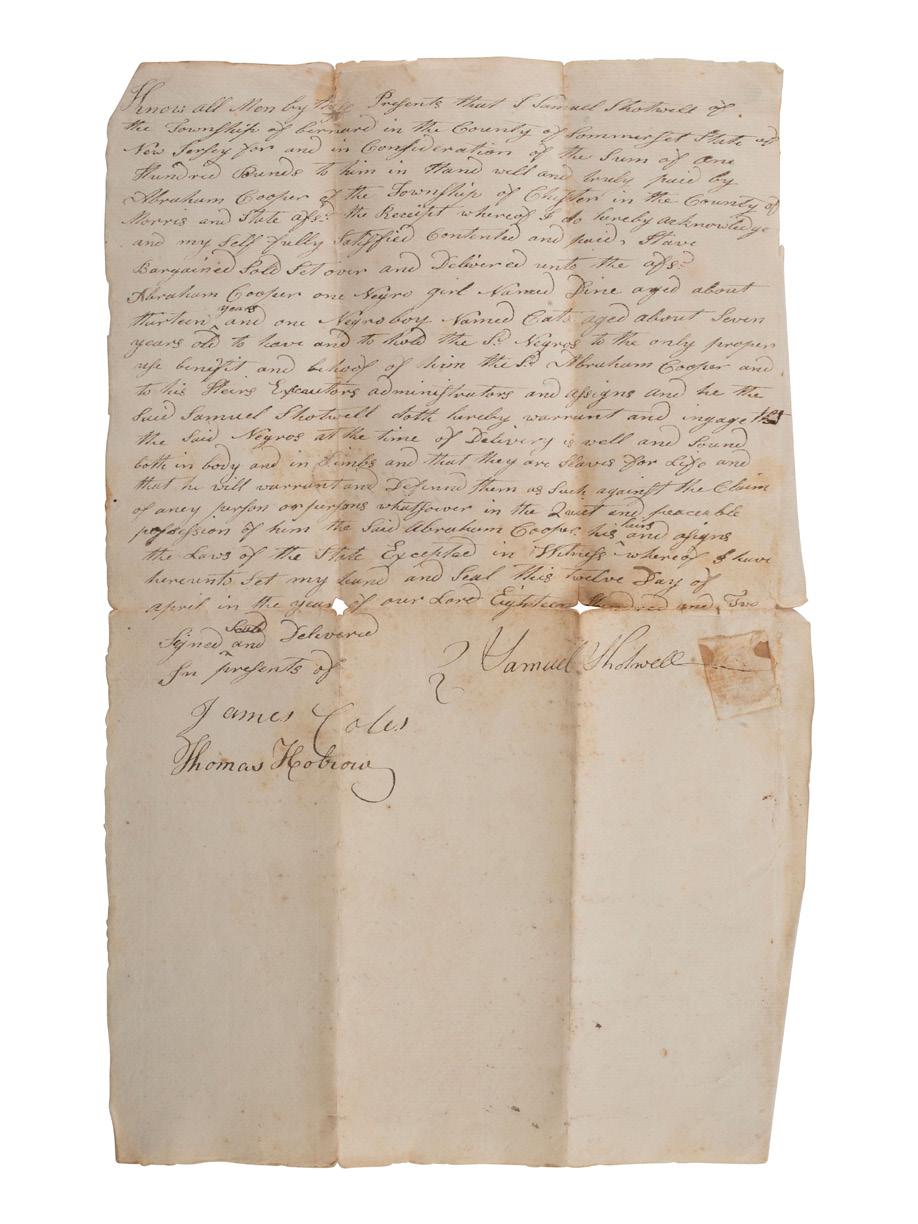 Know all Men by these Presents that I Samuel Shotwell of
the Township of bernard in the County of Sommerset State of
New Jersey for and in Consideration of the Sum of One
Hundred Pounds to him in Hand well and truly paid by
Abraham Cooper of the Township of Chester in the County of
Morris and State afsd the Receipt whereof I do hereby acknowledge
and my Self fully Sattisfied Contented and paid, Have
Bargained Sold Set over and Delivered unto the afsd
Abraham Cooper one Negro girl Named Dine aged about
thirteen years and one Negro boy Named Cato aged about Seven
years old to have and to hold the Sd Negros to the only proper
use benefit and behoof of him the Sd Abraham Cooper and
to his Heirs Excautors administrators and assigns and he the
Said Samuel Shotwell doth hereby warrant and ingage that
the Said Negros at the time of Delivery is well and Sound
both in body and in Limbs and that they are Slaves for Life and
that he will warrant and Defend them as Such against the Claim
of aney person or persons whatsover in the Quiet and peaceable
possession of him the Said Abraham Cooper his heirs and assigns
the Laws of the State Excepted in Witness whereof I have
hereunto Set my hand and Seal this twelve Day of
april in the year of our Lord Eighteen Hundred and Two
Signed Seald and Delivered
In presents of
Samuel Shotwell
James Coles
Thomas Hobrow